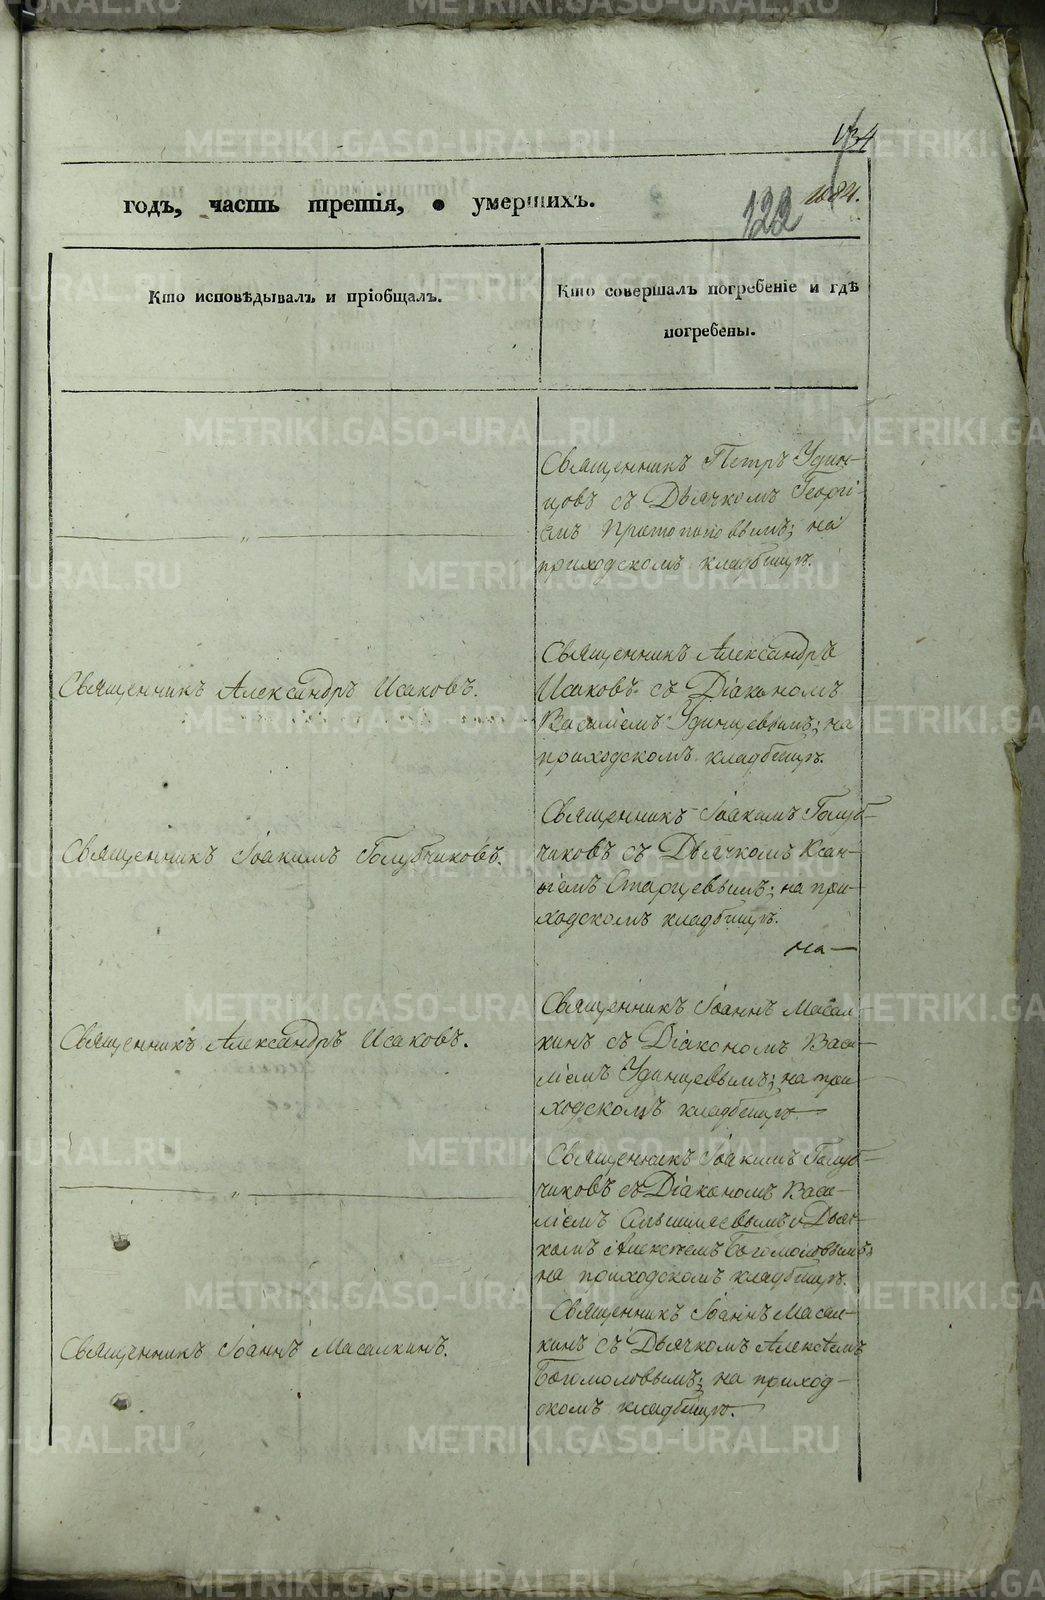 134
годъ, часть третія, о умершихъ.
122
1084.
Кто исповѣдывалъ и пріобщалъ.
Кто совершалъ погребеніе и гдѣ
погребены.
Священникъ Петръ Удин-
цовъ съ Дьячкомъ Георгі-
емъ Протопоповымъ; на
приходскомъ кладбищѣ.
Священникъ Александръ Исаковъ.
Священникъ Александръ
Исаковъ съ Діакономъ
Василіемъ Удинцевымъ; на
приходскомъ кладбищѣ.
Священникъ Іоакимъ Голубчиковъ.
Священникъ Іоакимъ Голуб-
чиковъ съ Дьячкомъ Ксан-
ѳіемъ Старцевымъ; на при-
ходскомъ кладбищѣ.
на
Священникъ Александръ Исаковъ.
Священникъ Іоаннъ Масал-
кинъ съ Діакономъ Васи-
ліемъ Удинцевымъ; на при-
ходскомъ кладбищѣ.
Священникъ Іоакимъ Голуб-
чиковъ съ Діакономъ Васи-
ліемъ и Дьяч-
комъ Алексѣемъ Богомоловымъ;
на приходскомъ кладбищѣ.
Священникъ Іоаннъ Масалкинъ.
Священникъ Іоаннъ Масал-
кинъ съ Дьячкомъ Алексѣемъ
Богомоловымъ; на приход-
скомъ кладбищѣ.
METRIKI.GASO-URAL.RU